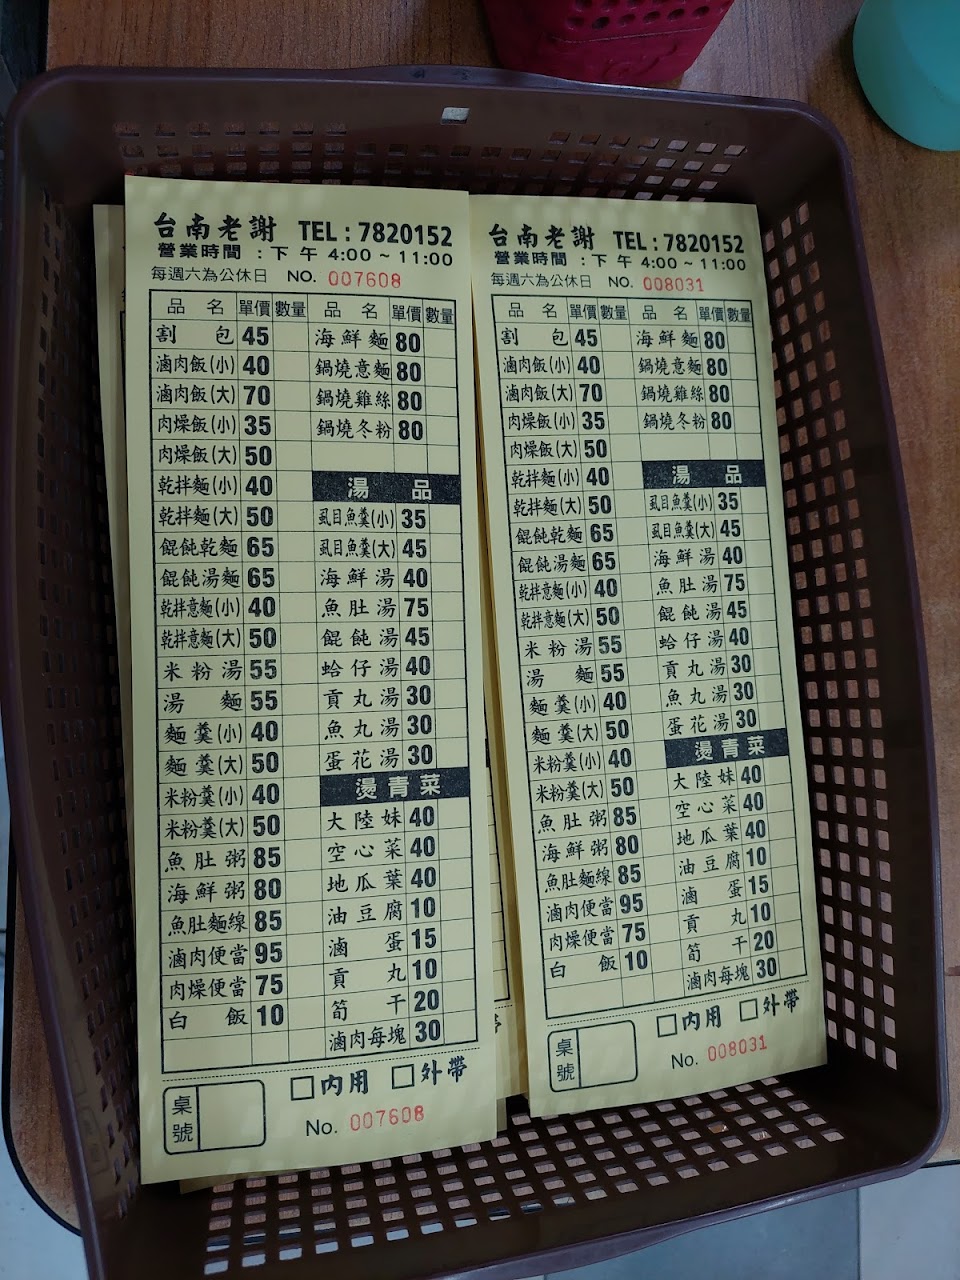 台南老謝 TEL:7820152
營業時間 :下午 4:00~11:00
每週六為公休日 NO. 007608
品名 單價 數量 品名 單價 數量
割包 45 海鮮麵 80
滷肉飯(小) 40 鍋燒意麵 80
滷肉飯(大) 70 鍋燒雞絲 80
肉燥飯(小) 35 鍋燒冬粉 80
肉燥飯(大) 50
乾拌麵(小) 40 湯品
乾拌麵(大) 50 虱目魚羹(小) 35
餛飩乾麵 65 虱目魚羹(大) 45
餛飩湯麵 65 海鮮湯 40
乾拌意麵(小) 40 魚肚湯 75
乾拌意麵(大) 50 餛飩湯 45
米粉湯 55 蛤仔湯 40
湯麵 55 貢丸湯 30
麵羹(小) 40 魚丸湯 30
麵羹(大) 50 蛋花湯 30
米粉羹(小) 40 燙青菜
米粉羹(大) 50 大陸妹 40
魚肚粥 85 空心菜 40
海鮮粥 80 地瓜葉 40
魚肚麵線 85 油豆腐 10
滷肉便當 95 滷蛋 15
肉燥便當 75 貢丸 10
白飯 10 筍干 20
滷肉每塊 30
桌號 □內用 □外帶
No. 007608
台南老謝 TEL:7820152
營業時間 :下午 4:00~11:00
每週六為公休日 NO. 008031
品名 單價 數量 品名 單價 數量
割包 45 海鮮麵 80
滷肉飯(小) 40 鍋燒意麵 80
滷肉飯(大) 70 鍋燒雞絲 80
肉燥飯(小) 35 鍋燒冬粉 80
肉燥飯(大) 50
乾拌麵(小) 40 湯品
乾拌麵(大) 50 虱目魚羹(小) 35
餛飩乾麵 65 虱目魚羹(大) 45
餛飩湯麵 65 海鮮湯 40
乾拌意麵(小) 40 魚肚湯 75
乾拌意麵(大) 50 餛飩湯 45
米粉湯 55 蛤仔湯 40
湯麵 55 貢丸湯 30
麵羹(小) 40 魚丸湯 30
麵羹(大) 50 蛋花湯 30
米粉羹(小) 40 燙青菜
米粉羹(大) 50 大陸妹 40
魚肚粥 85 空心菜 40
海鮮粥 80 地瓜葉 40
魚肚麵線 85 油豆腐 10
滷肉便當 95 滷蛋 15
肉燥便當 75 貢丸 10
白飯 10 筍干 20
滷肉每塊 30
桌號 □內用 □外帶
No. 008031